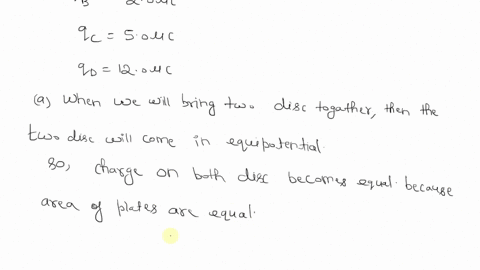 q_C = 5.0 μC
q_D = 12.0 μC
(a) When we will bring two disc togather, then the
two disc will come in equipotential.
so, charge on both disc becomes equal because
area of plates are equal.